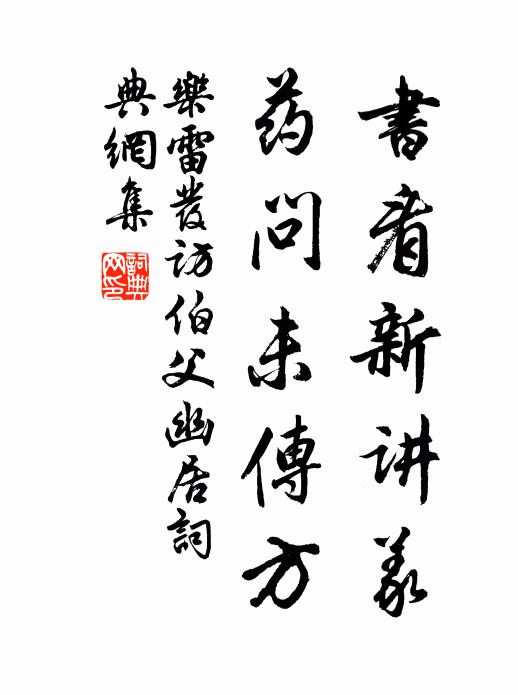 書看新讲義
药問未傳方
樂雷發访伯父幽居詞
典網集
詞典網印